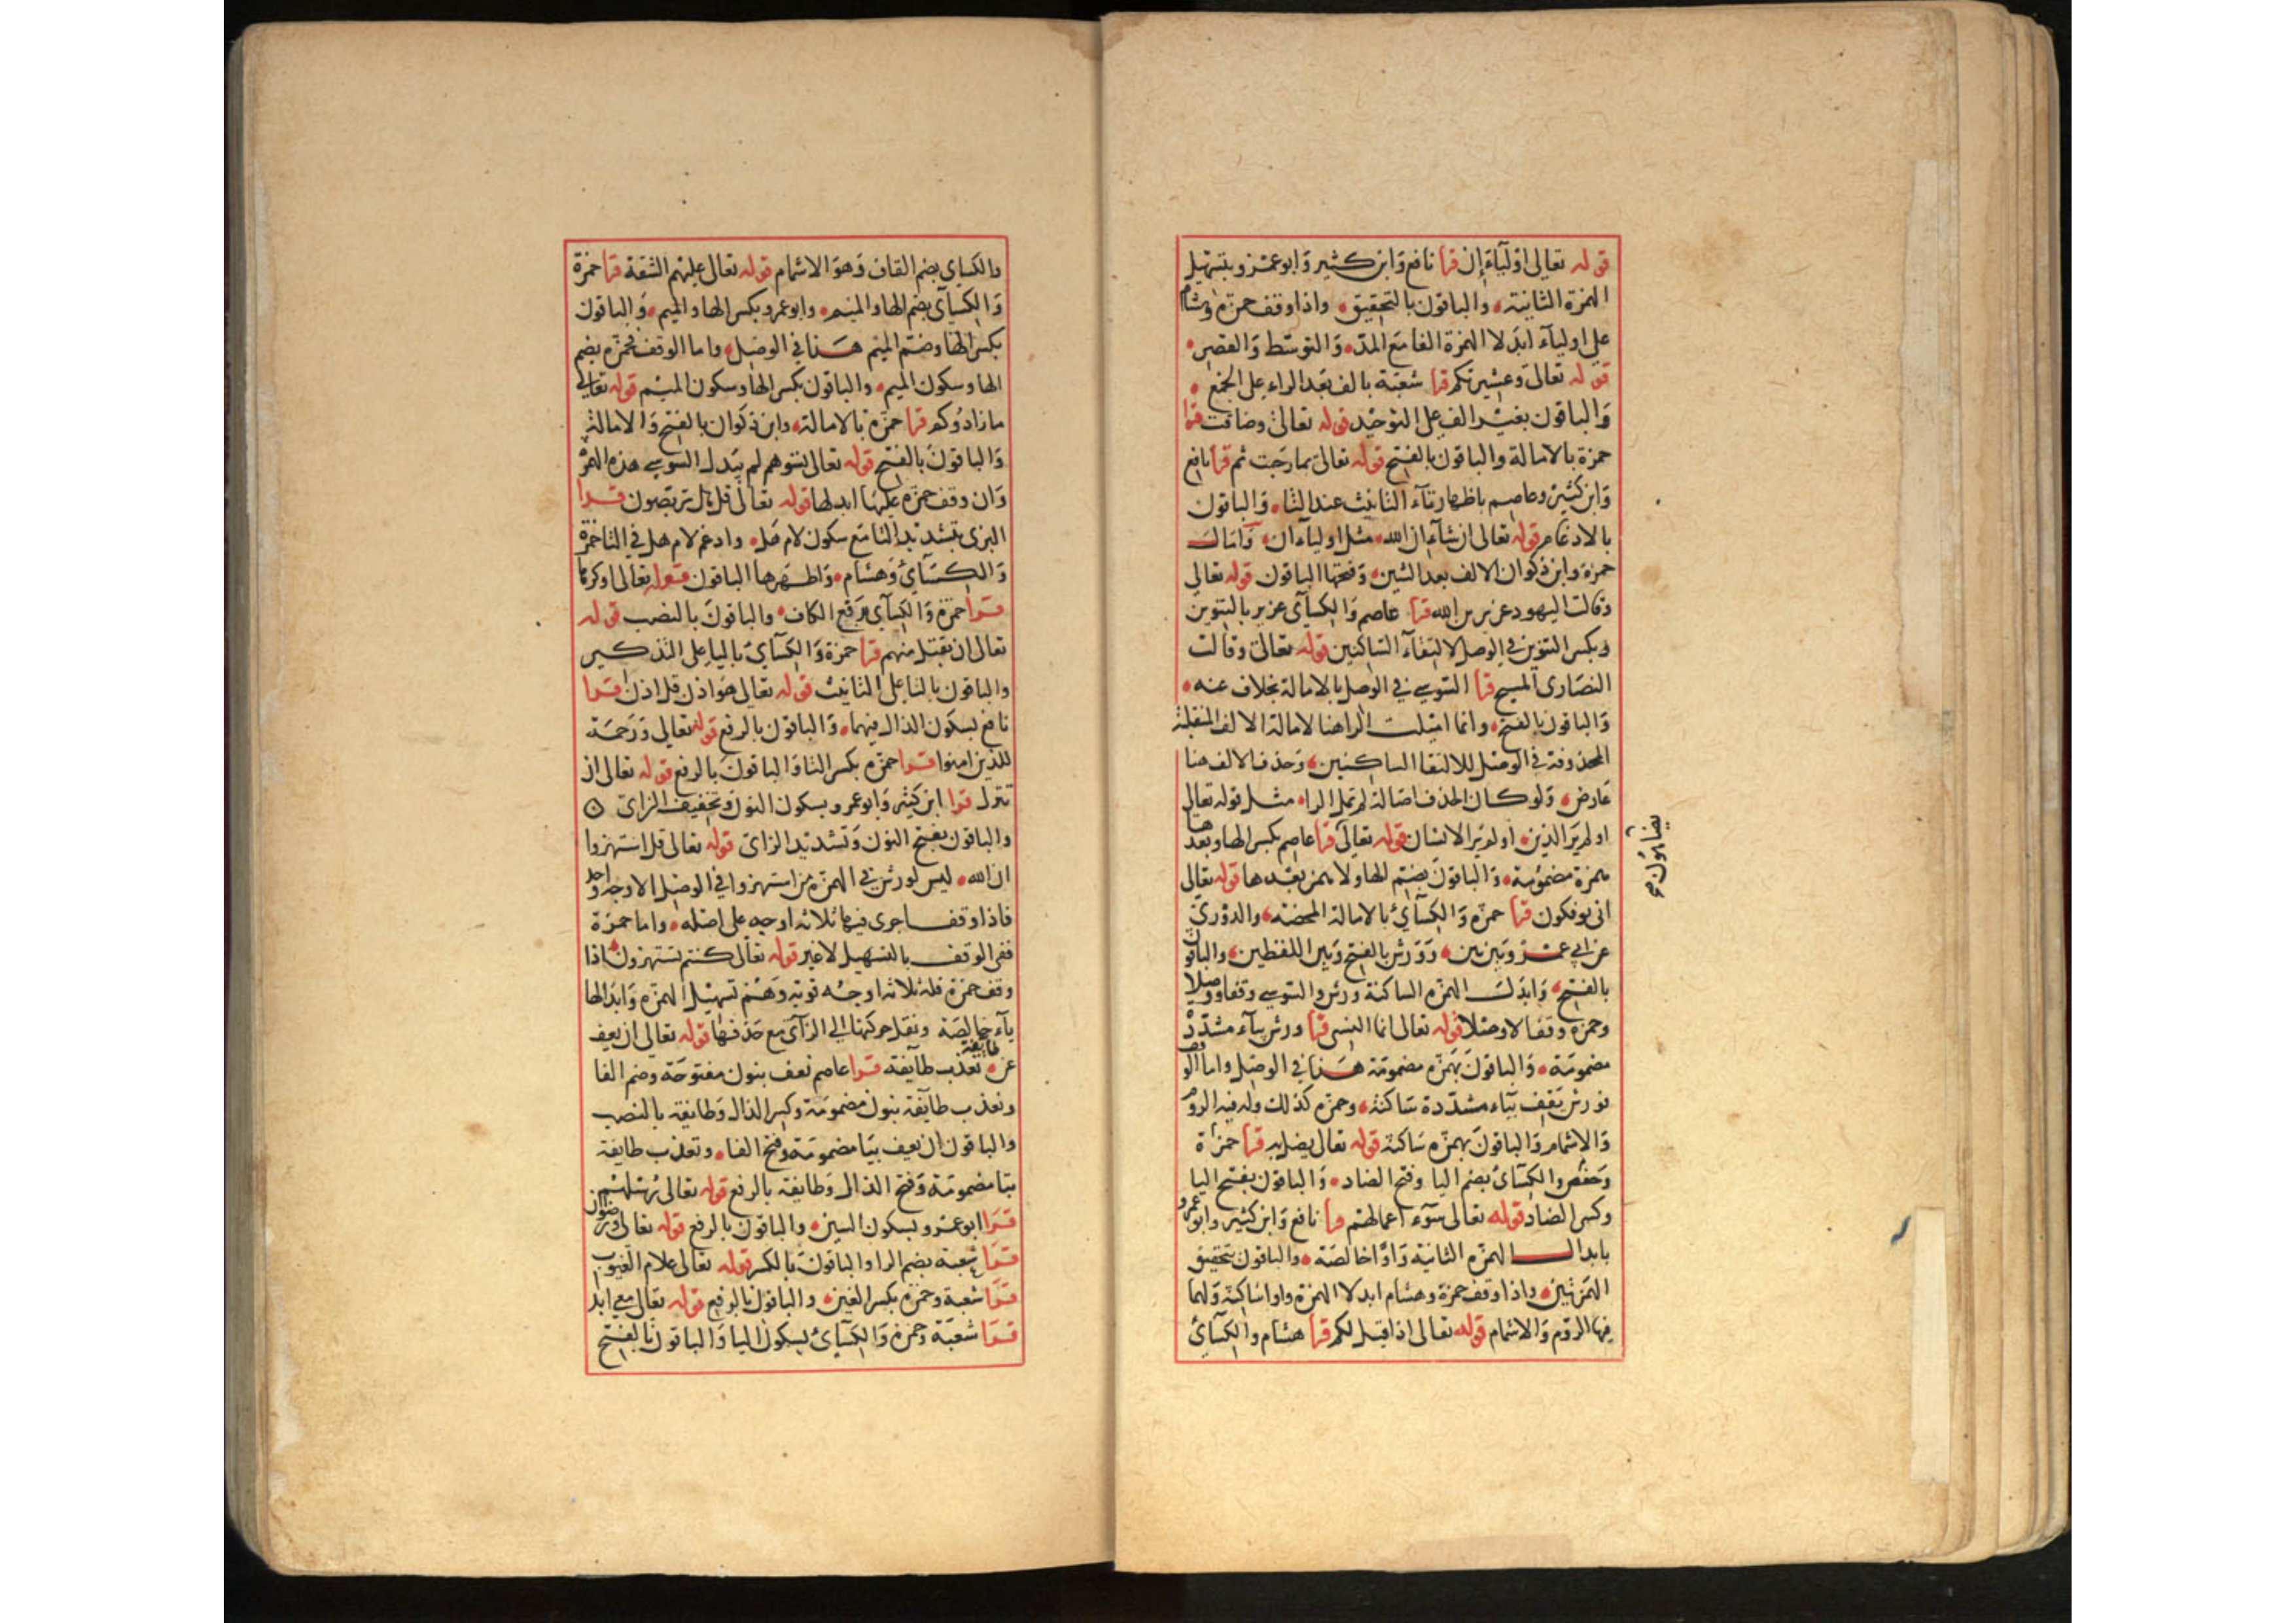 قوله تعالى اوليآء إن قرا نافع وابن كثير وابو عمرو بتسهيل
الهمزة الثانية والباقون بالتحقيق واذا وقف حمزة وهشام
على اوليآء ابدلا الهمزة الفا مع المد والتوسط والقصر
قوله تعالى وعشيرتكم قرا شعبة بالف بعد الراء على الجمع
والباقون بغير الف على التوحيد قوله تعالى وضاقت قرا
حمزة بالامالة والباقون بالفتح قوله تعالى بما رحبت ثم قرا نافع
وابن كثير وعاصم باظهار تاء التانيث عند الثا والباقون
بالادغام قوله تعالى ان شاء ان الله مثل اوليآء ان وامال
حمزة وابن ذكوان الالف بعد الشين وفتحها الباقون قوله تعالى
وقالت اليهود عزير بن الله قرا عاصم والكسآى عزير بالتنوين
وبكسر التنوين في الوصل لالتقآء الساكنين قوله تعالى وقالت
النصارى المسيح قرا السوسي في الوصل بالامالة بخلاف عنه
والباقون بالفتح وانما اميلت الراهنا لامالة الالف المنقلبة
المحذوفة في الوصل للالتقا الساكنين وحذف الالف هنا
عارض ولو كان الحذف اصالة لم تمل الرا مثل قوله تعالى
اولم ير الذين اولم ير الانسان قوله تعالى قرا عاصم بكسر الها وبعدها
همزة مضمومة والباقون بضم الها ولا همز بعدها قوله تعالى
يضاهون صح
انى يوفكون قرا حمزة والكسآئ بالامالة المحضة والدوري
عن ابي عمرو بين بين وورش بالفتح وبين اللفظين والباقون
بالفتح وابدل الهمزة الساكنة ورش والسوسي وقفا ووصلا
وحمزة وقفا لا وصلا قوله تعالى انما النسى قرا ورش بيآء مشددة
مضمومة والباقون بهمزة مضمومة هنا في الوصل واما الوقف
فورش يقف بياء مشددة ساكنة وحمزة كذلك وله فيه الروم
والاشمام والباقون بهمزة ساكنة قوله تعالى يضل به قرا حمزة
وحفص والكسآئ بضم اليا وفتح الضاد والباقون بفتح اليا
وكسر الضاد قوله تعالى سوء اعمالهم قرا نافع وابن كثير وابو عمرو
بابدال الهمزة الثانية واوا خالصة والباقون بتحقيق
الهمزتين واذا وقف حمزة وهشام ابدلا الهمزة واوا ساكنة ولهما
فيها الروم والاشمام قوله تعالى اذا قيل لكم قرا هشام والكسآئ
والكساي بضم القاف وهو الاشمام قوله تعالى عليهم الشقة قرا حمزة
والكسآى بضم الها والميم وابو عمرو بكسر الها والميم والباقون
بكسر الها وضم الميم هنا في الوصل واما الوقف فحمزة بضم
الها وسكون الميم والباقون بكسر الها وسكون الميم قوله تعالى
ما زادوكم قرا حمزة بالامالة وابن ذكوان بالفتح والامالة
والباقون بالفتح قوله تعالى تسوهم لم يبدل السوسي هذه الهمزة
وان وقف حمزة عليها ابدلها قوله تعالى قل هل تربصون قرا
البزى بتشديد التا مع سكون لام هل وادغم لام هل في التا حمزة
والكسآئ وهشام واظهرها الباقون قوله تعالى او كرها
قرا حمزة والكسآى برفع الكاف والباقون بالنصب قوله
تعالى ان تقبل منهم قرا حمزة والكسآئ باليا على التذكير
والباقون بالتا على التانيث قوله تعالى هو اذن قل اذن قرا
نافع بسكون الذال فيهما والباقون بالرفع قوله تعالى ورحمة
للذين امنوا قرا حمزة بكسر التا والباقون بالرفع قوله تعالى ان
تنزل قرا ابن كثير وابو عمرو بسكون النون وتخفيف الزاى
والباقون بفتح النون وتشديد الزاى قوله تعالى قل استهزوا
ان الله ليس لورش في الهمزة من استهزوا في الوصل الا وجه واحد
فاذا وقف اجرى فيها ثلاثة اوجه على اصله واما حمزة
ففى الوقف بالتسهيل لا غير قوله تعالى كنتم تستهزون اذا
وقف حمزة فله ثلاثة اوجه وهم تسهيل الهمزة وابدالها
يآء خالصة ونقل حركتها الى الزآى مع حذفها قوله تعالى ان يعف
عن طايفة تعذب طآيفة قرا عاصم نعف بنون مفتوحة وضم الفا
ونعذب طآيفة بنون مضمومة وكسر الذال وطايفة بالنصب
والباقون ان يعف بيا مضمومة وفتح الفا وتعذب طايفة
بتا مضمومة وفتح الذال وطايفة بالرفع قوله تعالى رسلهم
قرا ابو عمرو بسكون السين والباقون بالرفع قوله تعالى ورضوان
قرا شعبة بضم الرا والباقون بالكسر قوله تعالى علام الغيوب
قرا شعبة وحمزة بكسر الغين والباقون بالرفع قوله تعالى معي ابدا
قرا شعبة وحمزة والكسآئ بسكون اليا والباقون بالفتح